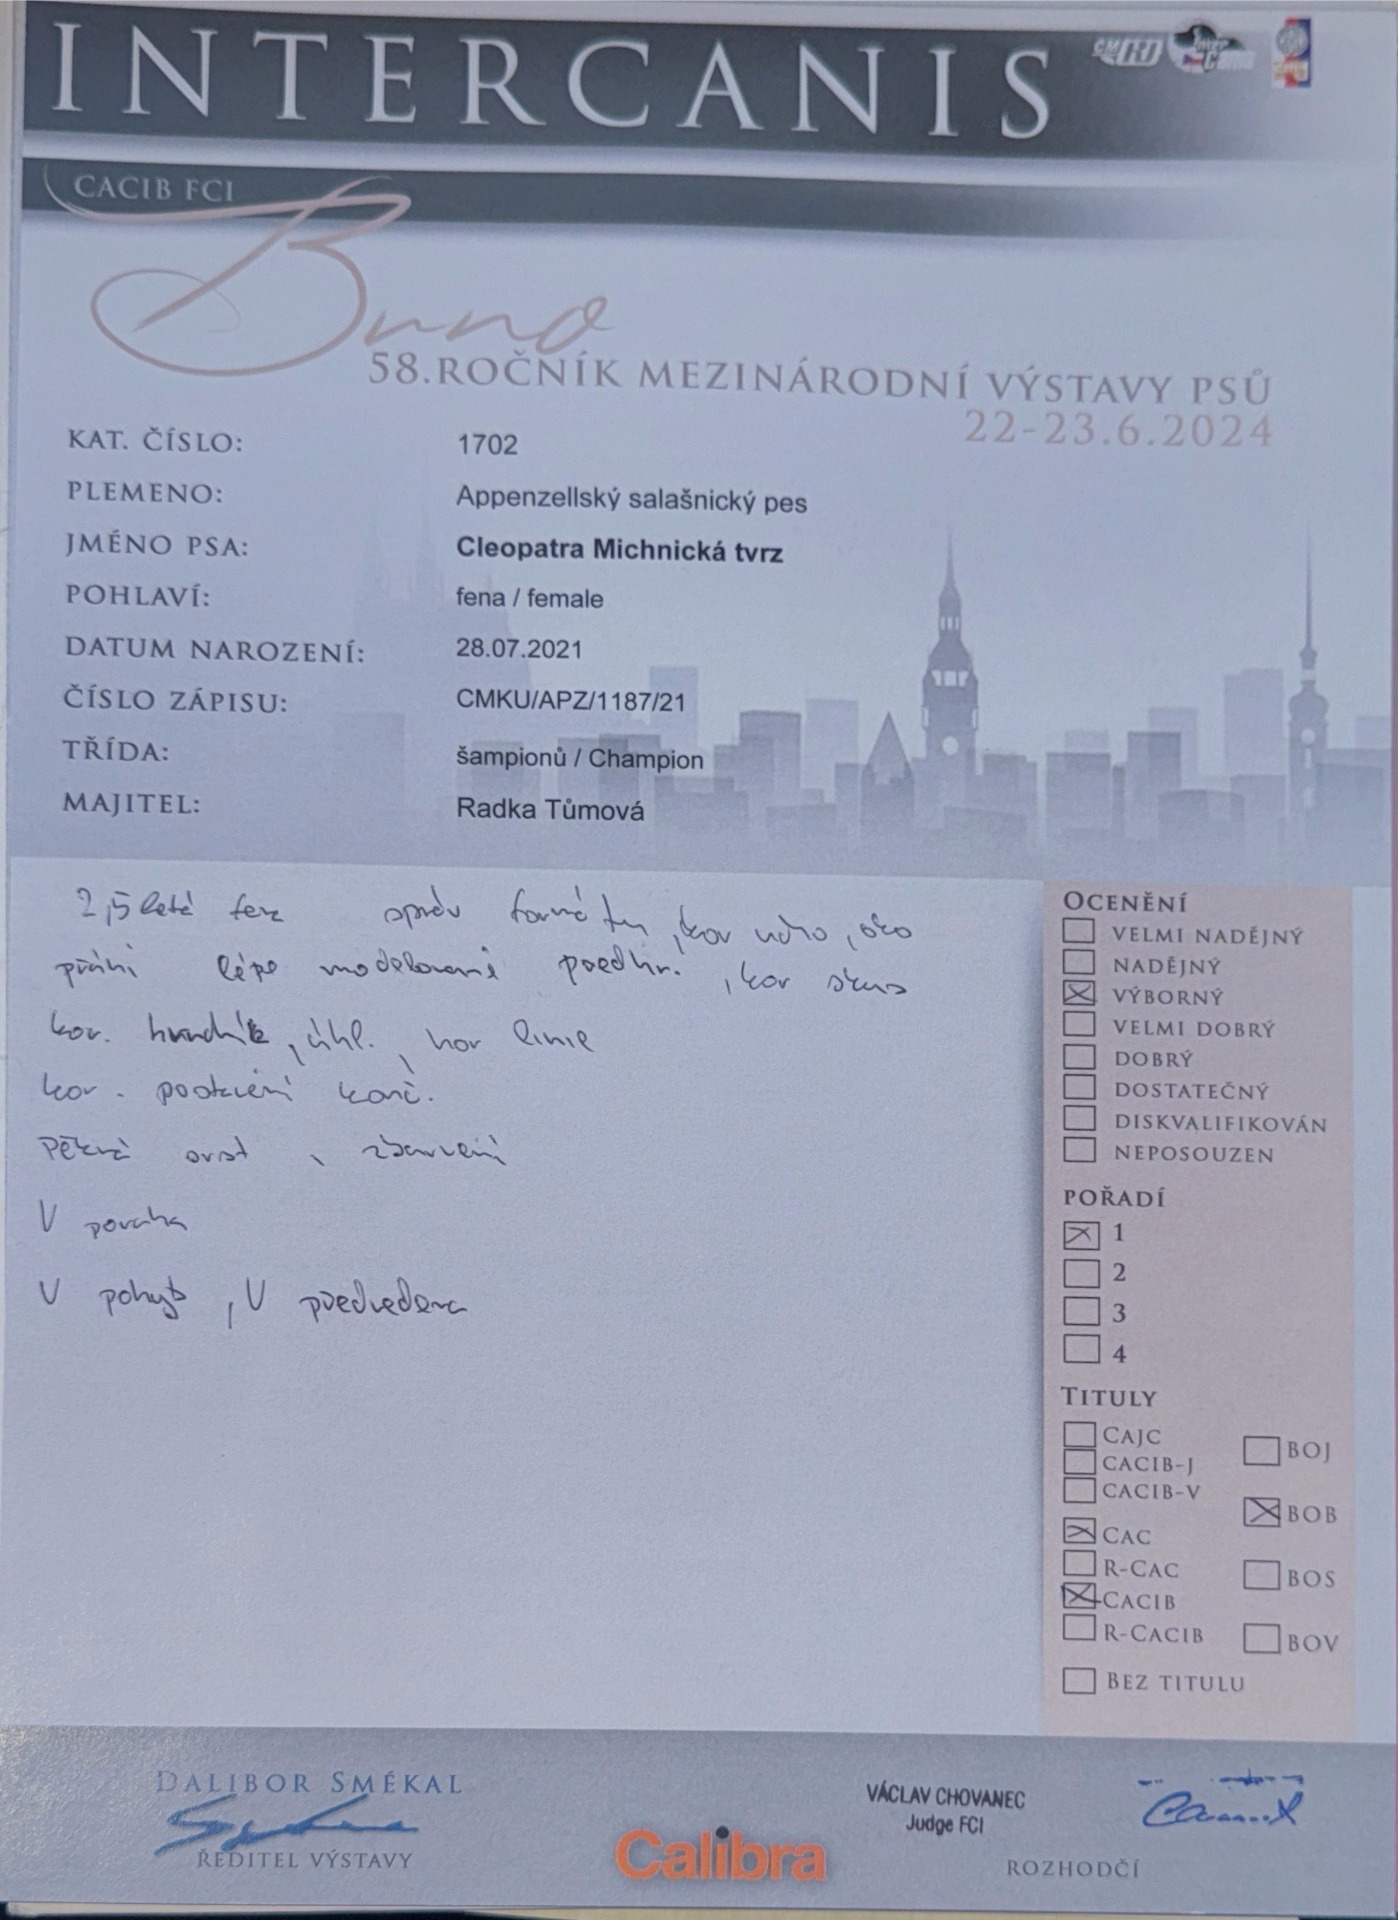 INTERCANIS
CACIB FCI
Brno
58.ROČNÍK MEZINÁRODNÍ VÝSTAVY PSŮ
22-23.6.2024
KAT. ČÍSLO: 1702
PLEMENO: Appenzellský salašnický pes
JMÉNO PSA: Cleopatra Michnická tvrz
POHLAVÍ: fena / female
DATUM NAROZENÍ: 28.07.2021
ČÍSLO ZÁPISU: CMKU/APZ/1187/21
TŘÍDA: šampionů / Champion
MAJITEL: Radka Tůmová
2,5 letá fena správ formátu, kor ucho, oko
přání lépe modelované předhr., kor skus
kor. hrudník, úhl., hor linie
kor. postavení konč.
Pěkná srst, zbarvení
V povaha
V pohyb, V předvedena
OCENĚNÍ
VELMI NADĚJNÝ
NADĚJNÝ
VÝBORNÝ
VELMI DOBRÝ
DOBRÝ
DOSTATEČNÝ
DISKVALIFIKOVÁN
NEPOSOUZEN
POŘADÍ
1
2
3
4
TITULY
CAJC
CACIB-J
CACIB-V
CAC
R-CAC
CACIB
R-CACIB
BEZ TITULU
BOJ
BOB
BOS
BOV
DALIBOR SMÉKAL
ŘEDITEL VÝSTAVY
Calibra
VÁCLAV CHOVANEC
Judge FCI
ROZHODČÍ